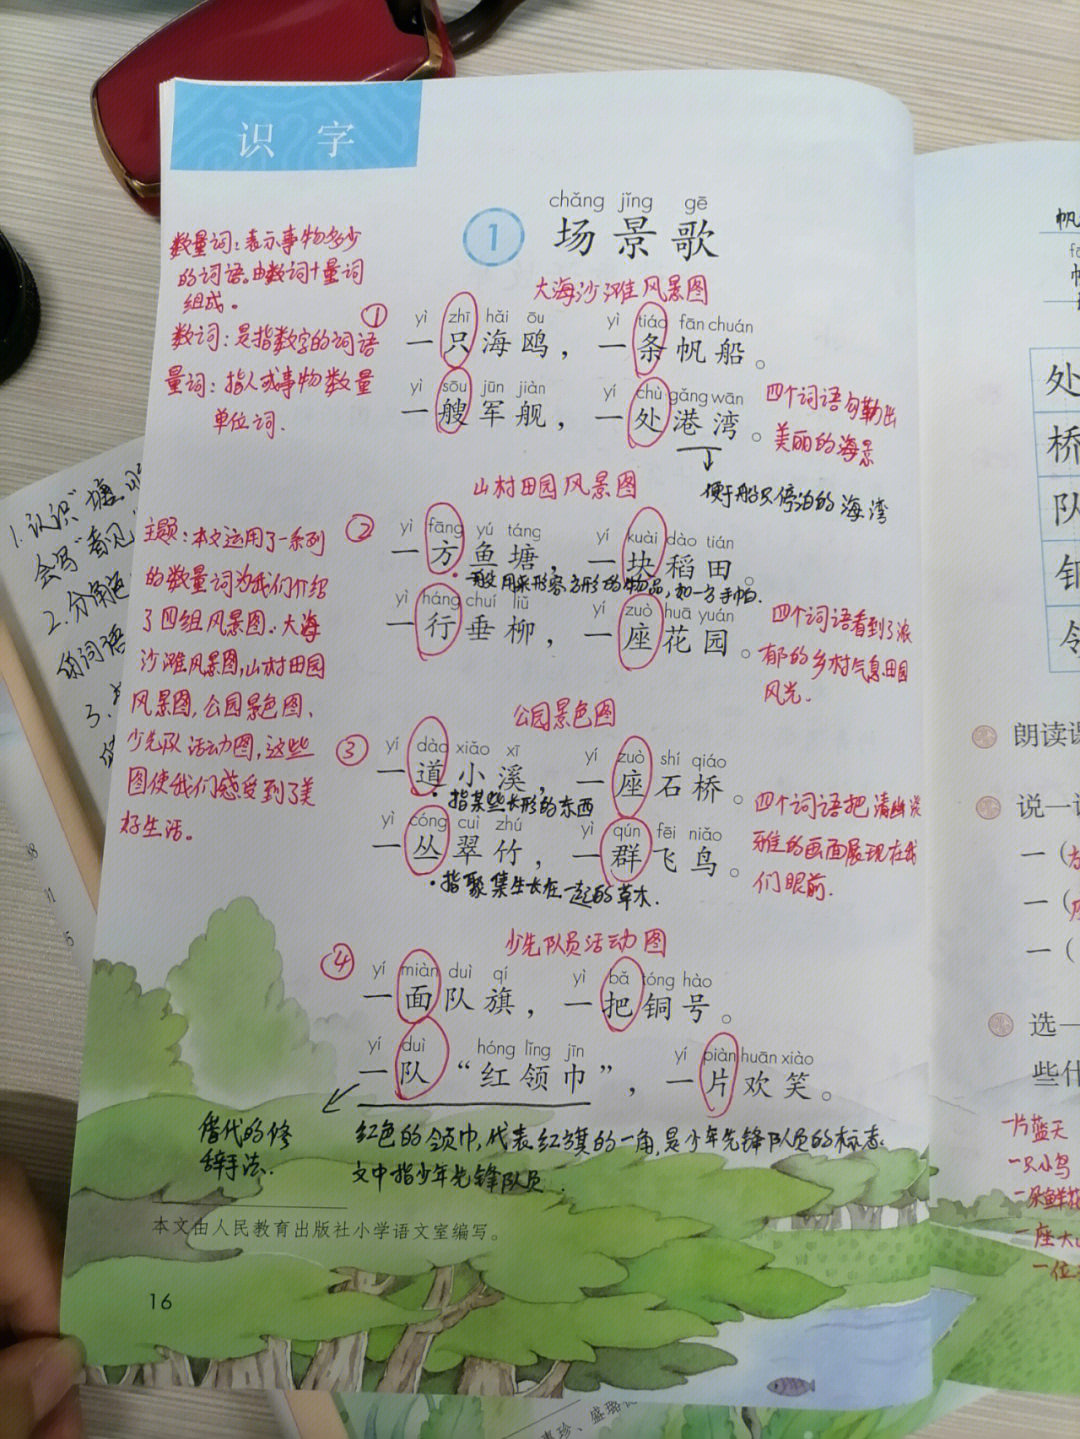 识 字
chǎng jǐng gē
1 场景歌
数量词:表示事物多少
的词语。由数词+量词
组成。
数词:是指数字的词语
量词:指人或事物数量
单位词.
大海沙滩风景图
①
yì zhī hǎi ōu yì tiáo fān chuán
一只海鸥，一条帆船。
yì sōu jūn jiàn yí chù gǎng wān
一艘军舰，一处港湾。
四个词语勾勒出
美丽的海景
便于船只停泊的海湾
山村田园风景图
②
yì fāng yú táng yí kuài dào tián
一方鱼塘，一块稻田。
·一般用来形容方形的物品,如一方手帕.
yì háng chuí liǔ yí zuò huā yuán
一行垂柳，一座花园。
四个词语看到了浓
郁的乡村气息田园
风光.
主题:本文运用了一系列
的数量词为我们介绍
了四组风景图.大海
沙滩风景图,山村田园
风景图,公园景色图、
少先队活动图,这些
图使我们感受到了美
好生活。
公园景色图
③
yí dào xiǎo xī yí zuò shí qiáo
一道小溪，一座石桥。
·指某些长形的东西
yì cóng cuì zhú yì qún fēi niǎo
一丛翠竹，一群飞鸟。
·指聚集生长在一起的草木.
四个词语把清幽淡
雅的画面展现在我
们眼前.
少先队员活动图
④
yí miàn duì qí yì bǎ tóng hào
一面队旗，一把铜号。
yí duì hóng lǐng jīn yí piàn huān xiào
一队“红领巾”，一片欢笑。
借代的修
辞手法.
红色的领巾,代表红旗的一角,是少年先锋队员的标志.
文中指少年先锋队员.
本文由人民教育出版社小学语文室编写。
16
1.认识"塘
会写"看见
2.分角色
的词语
3.
帆
处
桥
队
铜
领
朗读课
说一说
一(
一(
一(
选一
些什
一片蓝天
一只小鸟
一朵鲜花
一座大山
一位